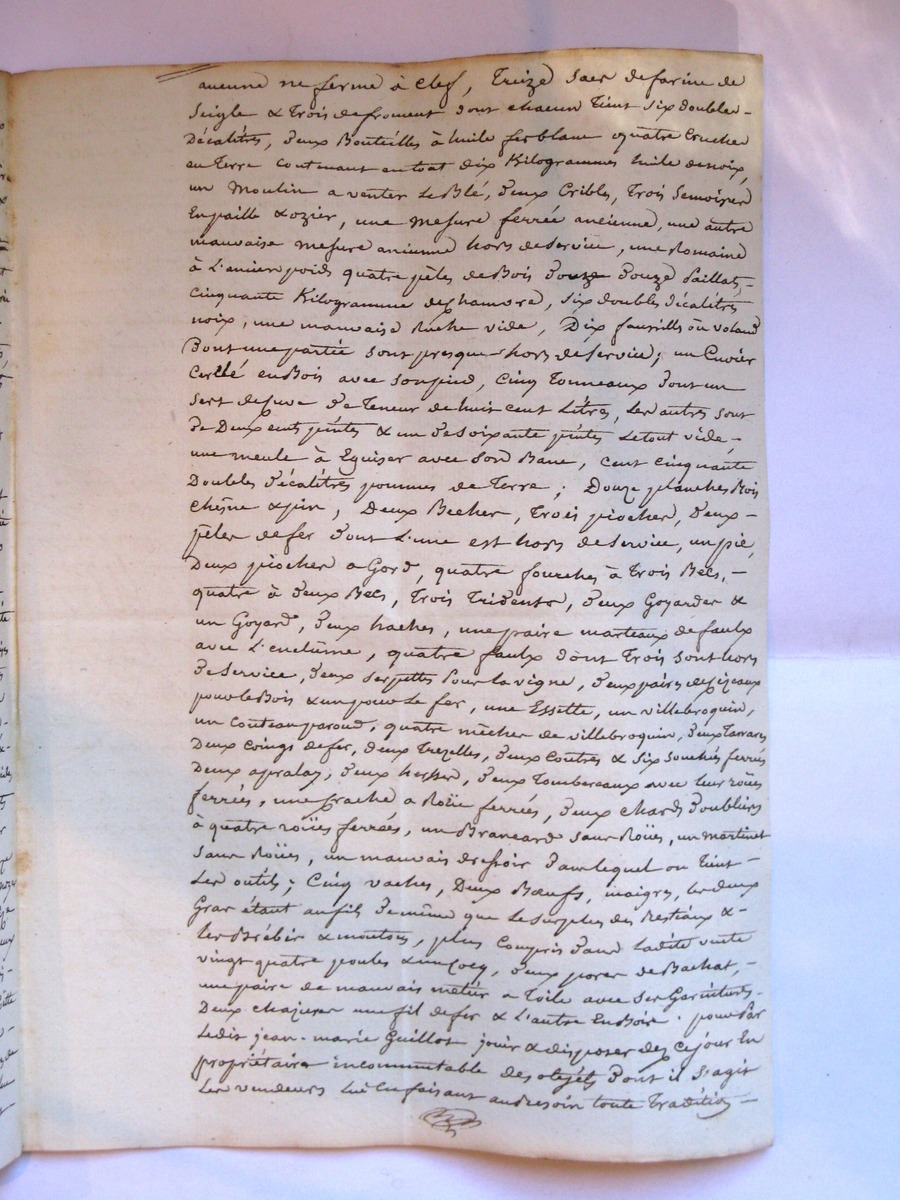 aucune ne ferme à Clef, Treize sacs de farine de
Seigle & Trois de froment dont chacun Tient six doubles
Décalitres, deux Bouteilles à huile fer blanc quatre Cruches
en Terre contenant en tout dix Kilogrammes huile de noix,
un Moulin a venter Le Blé, deux Cribles, Trois Semoires
En paille & ozier, une mesure ferrée ancienne, une autre
mauvaise mesure ancienne hors de service, une Romaine
à L'ancien poids quatre pèles de Bois Douze Paillats,
cinquante Kilogramme de chanvre, six doubles décalitres
noix, une mauvaise Ruche vide, Dix faucilles ou volans
Dont une partie sont presque hors de service; un Cuvier
Cerclé en Bois avec son pied, Cinq Tonneaux dont un
sert de cuve de Teneur de huit cent Litres, Les autres sont
de Deux cents pintes & un de soixante pintes Le tout vide,
une meule à Eguiser avec son Banc, cent cinquante
Doubles décalitres pommes de Terre; Douze planches Bois
chêne & pin, Deux Beches, Trois pioches, deux
pèles de fer dont L'une est hors de service, un pic,
Deux pioches a Gord, quatre fourches à Trois Becs,
quatre à deux Becs, Trois Tridents, deux Goyardes &
un Goyard, deux haches, une paire marteaux de faulx
avec L'enclume, quatre faulx dont Trois sont hors
de service, deux serpettes Pour la vigne, deux paires de Cizeaux
pour le Bois & un pour Le fer, une Essette, un villebroquin,
un Couteau paroud, quatre mèches de villebroquin, deux Tarrares
Deux Coings de fer, deux Trezelles, deux Coutres & six souches ferrés
Deux apralas, deux herses, deux Tombereaux avec leur roües
ferrées, une Crache a Roüe ferrées, deux chards Doubliers
à quatre roües ferrées, un Brancard sans Roües, un martinet
sans Roües, un mauvais dressoir dans lequel on Tient
Les outils; Cinq vaches, Deux Bœufs, maigres, les deux
Gras étant au fils de même que Le surplus des Bestiaux &
les Brébis & moutons, plus Compris dans Ladite vente
vingt quatre poules & un Cocq, deux porcs de Bachat,
une paire de mauvais métier a Toile avec ses Garnitures
Deux chasieres une fil de fer & L'autre En Bois. pour Par
Ledit jean-marie Guillot jouir & disposer dès Ce jour En
propriétaire incommutable des objets Dont il s'agit
Les vendeurs Lui En faisant au besoin toute Tradition